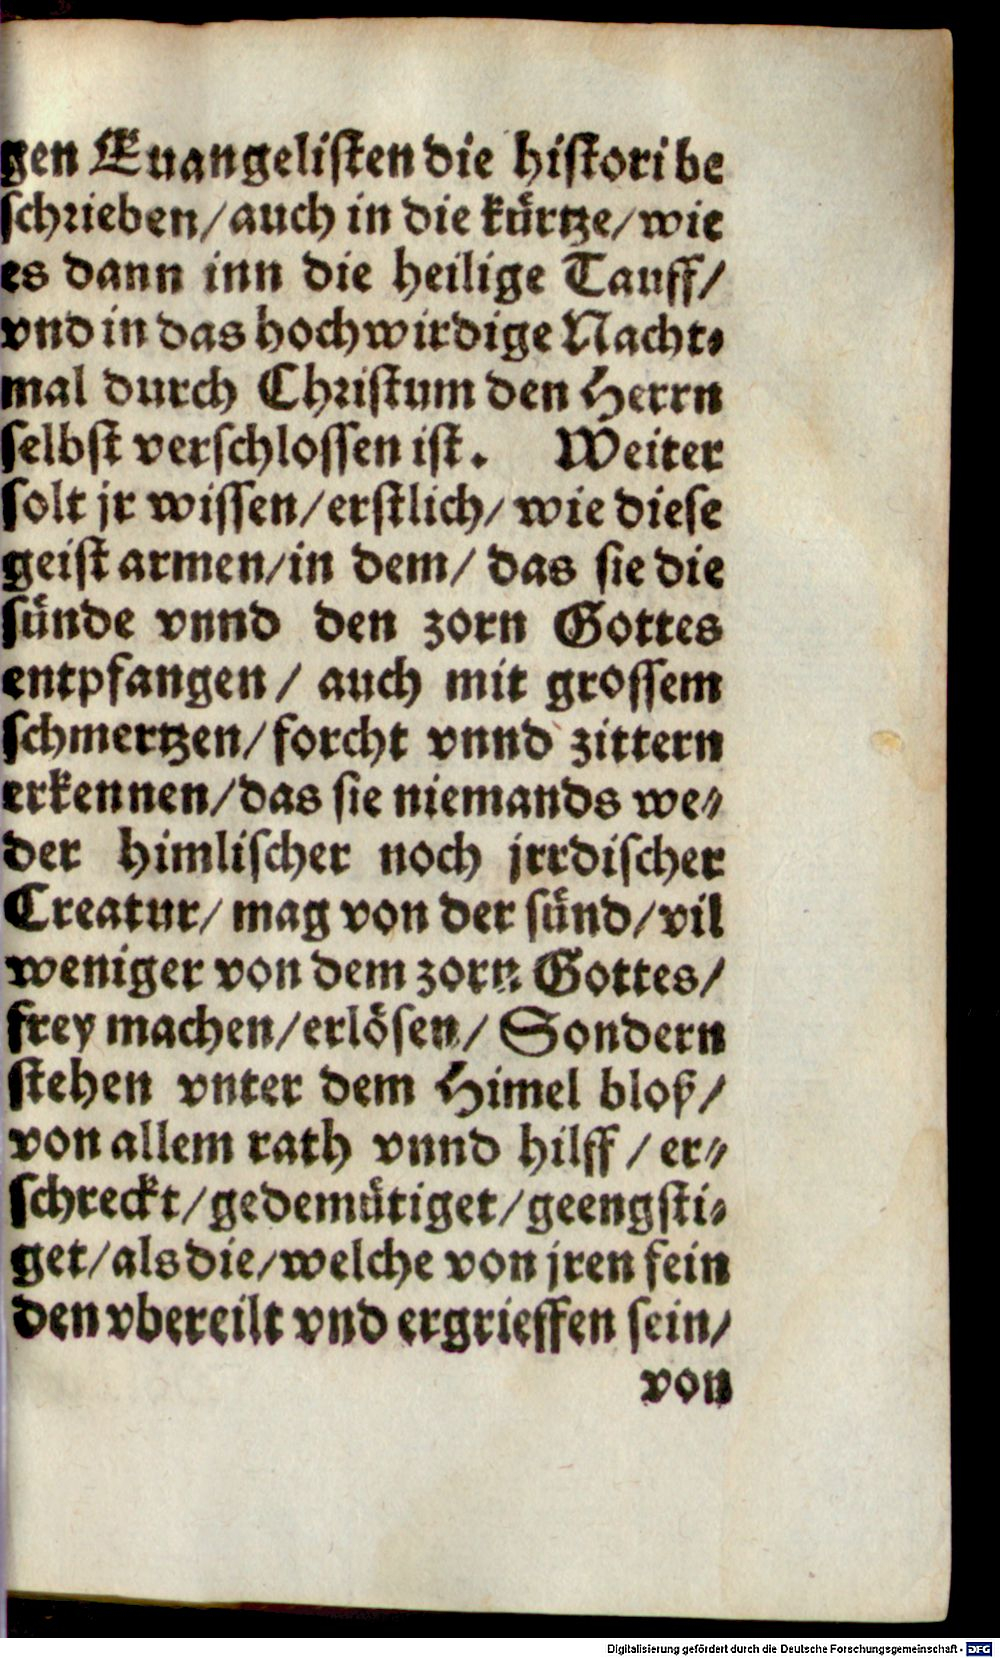 gen Euangelisten die histori be
schrieben/auch in die kürtze/wie
es dann inn die heilige Tauff/
vnd in das hochwirdige Nacht⸗
mal durch Christum den Herrn
selbst verschlossen ist. Weiter
solt jr wissen/erstlich/wie diese
geist armen/in dem/das sie die
sünde vnnd den zorn Gottes
entpfangen/auch mit grossem
schmertzen/forcht vnnd zittern
erkennen/das sie niemands we⸗
der himlischer noch jrrdischer
Creatur/mag von der sünd/vil
weniger von dem zorn Gottes/
frey machen/erlösen/Sondern
stehen vnter dem Himel bloß/
von allem rath vnnd hilff/er⸗
schreckt/gedemütiget/geengsti⸗
get/als die/welche von jren fein
den vbereilt vnd ergrieffen sein/
von
Digitalisierung gefördert durch die Deutsche Forschungsgemeinschaft - DFG